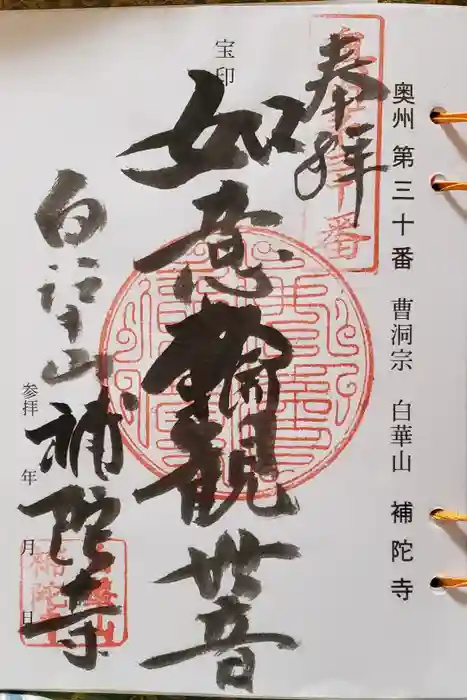 奥州 第三十番 曹洞宗 白華山 補陀寺
奉拝
宝印
如意輪観世音
白華山 補陀寺
参拝 年 月 日